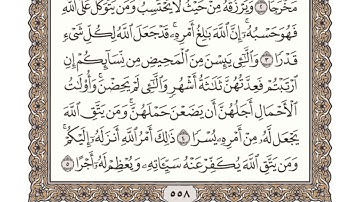 مَخْرَجًا ٢ وَيَرْزُقْهُ مِنْ حَيْثُ لَا يَحْتَسِبُ وَمَن يَتَوَكَّلْ عَلَى ٱللَّهِ
فَهُوَ حَسْبُهُۥٓ إِنَّ ٱللَّهَ بَٰلِغُ أَمْرِهِۦ قَدْ جَعَلَ ٱللَّهُ لِكُلِّ شَىْءٍ
قَدْرًا ٣ وَٱلَّٰٓـِٔى يَئِسْنَ مِنَ ٱلْمَحِيضِ مِن نِّسَآئِكُمْ إِنِ
ٱرْتَبْتُمْ فَعِدَّتُهُنَّ ثَلَٰثَةُ أَشْهُرٍ وَٱلَّٰٓـِٔى لَمْ يَحِضْنَ وَأُو۟لَٰتُ
ٱلْأَحْمَالِ أَجَلُهُنَّ أَن يَضَعْنَ حَمْلَهُنَّ وَمَن يَتَّقِ ٱللَّهَ
يَجْعَل لَّهُۥ مِنْ أَمْرِهِۦ يُسْرًا ٤ ذَٰلِكَ أَمْرُ ٱللَّهِ أَنزَلَهُۥٓ إِلَيْكُمْ
وَمَن يَتَّقِ ٱللَّهَ يُكَفِّرْ عَنْهُ سَيِّـَٔاتِهِۦ وَيُعْظِمْ لَهُۥٓ أَجْرًا ٥
٥٥٨